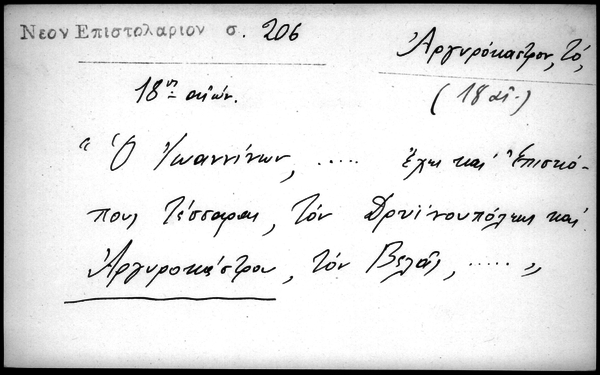 Νεον Επιστολαριον σ. 206
Ἀργυρόκαστρον, τό,
18ος αἰών.
(18 αἰ.)
"Ὁ Ἰωαννίνων, ..... ἔχει καὶ Ἐπισκό-
πους τέσσαρας, τὸν Δρυϊνουπόλεως καὶ
Ἀργυροκάστρου, τὸν Βελᾶς, ..... "